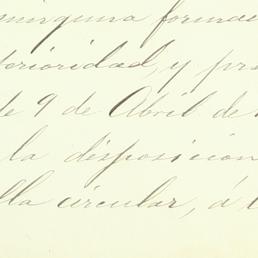 ninguna forma
terioridad, y pre
de 9 de Abril de
la disposicion
lla circular, á